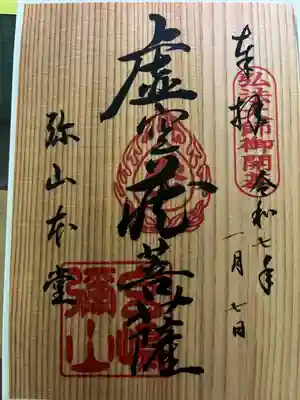 奉拝
弘法大師御開基
令和七年
一月七日
虚空蔵菩薩
弥山本堂
宮嶋
彌山